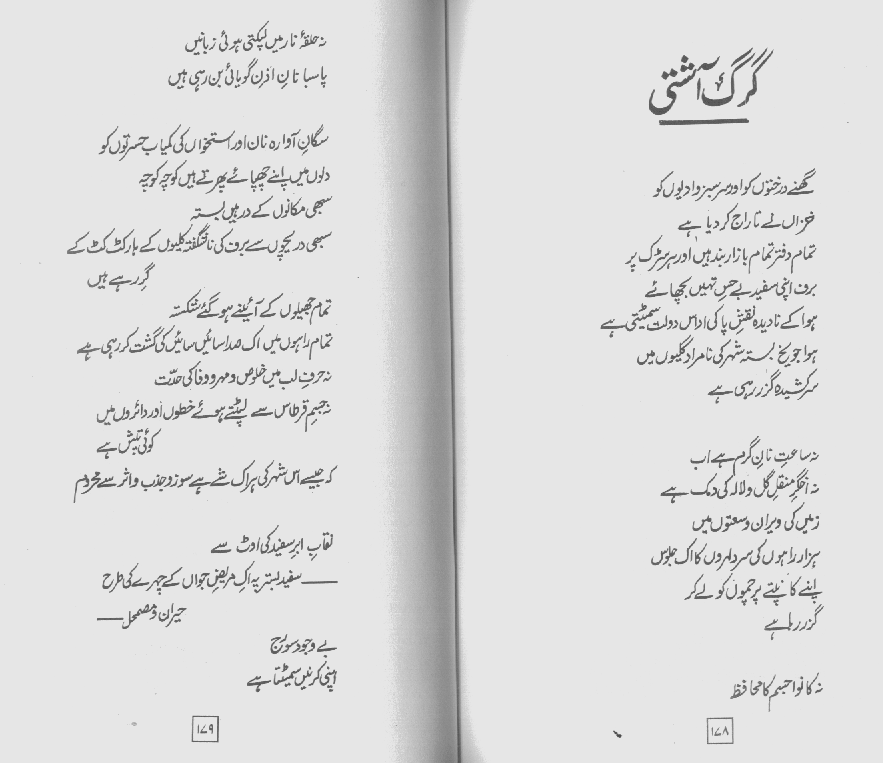 گرگ آشتی
گھنے درختوں کو اور سرسبز وادیوں کو
خزاں نے تاراج کر دیا ہے
تمام دفتر تمام بازار بند ہیں اور ہر سڑک پر
برف اپنی سفید بے حس تہیں بچھائے
ہوا کے نادیدہ نقش پا کی اداس دولت سمیٹتی ہے
ہوا جو یخ بستہ شہر کی نامراد گلیوں میں
سرکشیدہ گزر رہی ہے
نہ ساعتِ نانِ گرم ہے اب
نہ اخگرِ منقلِ گل و لالہ کی دمک ہے
زمیں کی ویران وسعتوں میں
ہزار راہوں کی سرد لہروں کا اک جلوس
اپنے کانپتے پرچموں کو لے کر
گزر رہا ہے
نہ کا نوا جسم کا محافظ
۱۷۸
نہ حلقۂ نار میں لپکتی ہوئی زبانیں
پاسبانانِ اذنِ گویائی بن رہی ہیں
سگانِ آوارہ نان اور استخواں کی کمیاب حسرتوں کو
دلوں میں اپنے چھپائے پھرتے ہیں کوچہ کوچہ
سبھی مکانوں کے در ہیں بستہ
سبھی دریچوں سے برف کی ناشگفتہ کلیوں کے ہار کٹ کٹ کے
گر رہے ہیں
تمام جھیلوں کے آئینے ہو گئے شکستہ
تمام راہوں میں اک صدا سائیں سائیں کی گشت کر رہی ہے
نہ حرفِ لب میں خلوص و مہر و وفا کی حدّت
نہ جسمِ قرطاس سے لپٹتے ہوئے خطوں اور دائروں میں
کوئی تپش ہے
کہ جیسے اس شہر کی ہر اک شے ہے سوز و جذب و اثر سے محروم
نقابِ ابرِ سفید کی اوٹ سے
—— سفید بستر پہ اک مریضِ جواں کے چہرے کی طرح
حیران و مضمحل ——
بے وجود سورج
اپنی کرنیں سمیٹتا ہے
۱۷۹